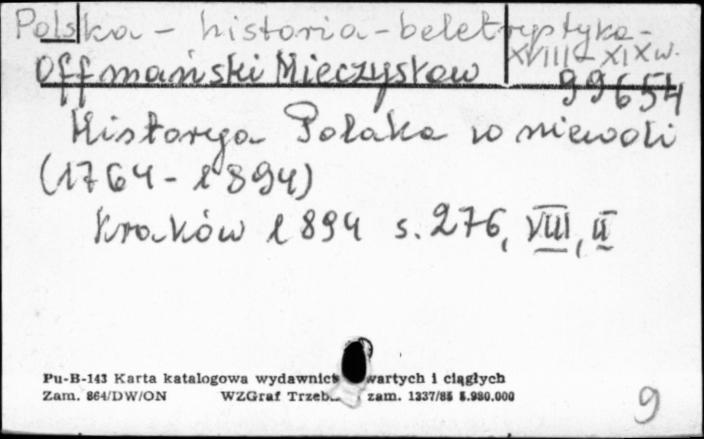 Polska - historia - beletrystyka -
XVIII - XIX w.
Offmański Mieczysław
99654
Historya Polaka w niewoli
(1764 - 1894)
Kraków 1894 s. 276, VIII, II
Pu-B-143 Karta katalogowa wydawnict wartych i ciągłych
Zam. 864/DW/ON WZGraf Trzeb. zam. 1337/85 5.980.000
9